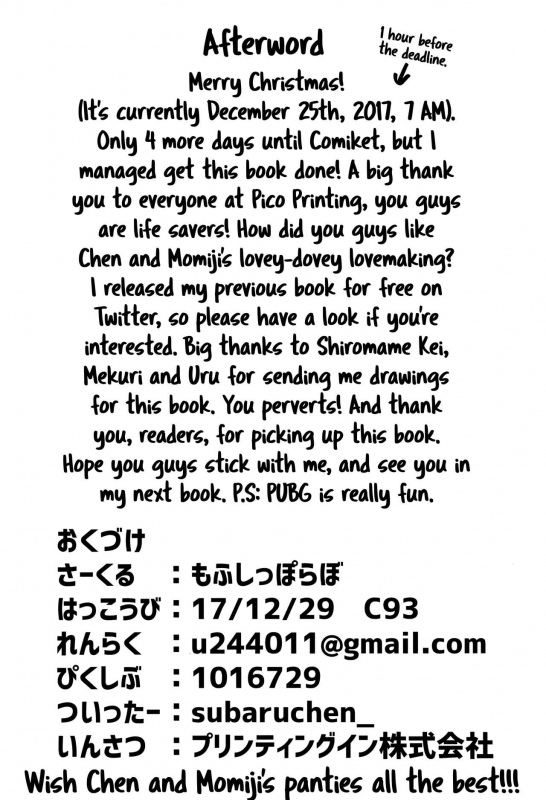 Afterword
1 hour before
the deadline.
Merry Christmas!
(It's currently December 25th, 2017, 7 AM).
Only 4 more days until Comiket, but I
managed get this book done! A big thank
you to everyone at Pico Printing, you guys
are life savers! How did you guys like
Chen and Momiji's lovey-dovey lovemaking?
I released my previous book for free on
Twitter, so please have a look if you're
interested. Big thanks to Shiromame Kei,
Mekuri and Uru for sending me drawings
for this book. You perverts! And thank
you, readers, for picking up this book.
Hope you guys stick with me, and see you in
my next book. P.S: PUBG is really fun.
おくづけ
さーくる ：もふしっぽらぼ
はっこうび：17/12/29 C93
れんらく ：u244011@gmail.com
ぴくしぶ ：1016729
ついったー：subaruchen_
いんさつ ：プリンティングイン株式会社
Wish Chen and Momiji's panties all the best!!!